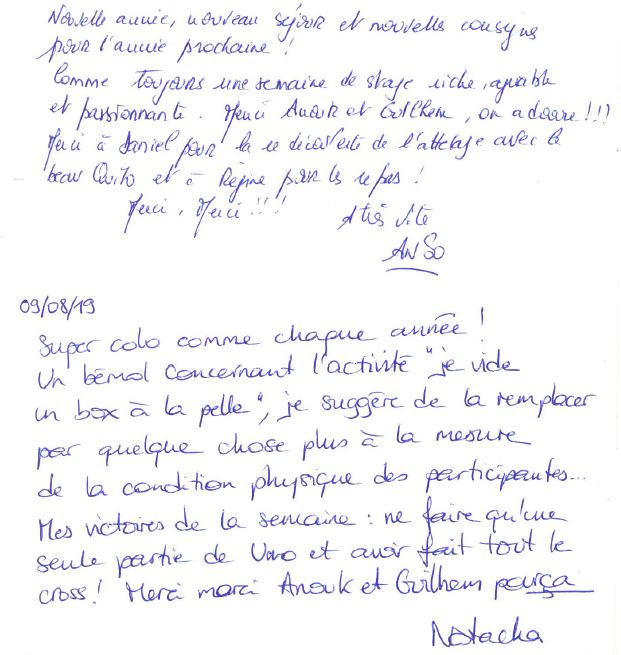 Nouvelle année, nouveau séjour et nouvelles consignes
pour l'année prochaine !
Comme toujours une semaine de stage riche, agréable
et passionnante. Merci Anouk et Guilhem, on adore !!!
Merci à Daniel pour la re découverte de l'attelage avec le
beau Quito et à Régine pour les repas !
Merci, Merci !!!
A très vite
ANSO
09/08/19
Super colo comme chaque année !
Un bémol concernant l'activité "je vide
un box à la pelle", je suggère de la remplacer
par quelque chose plus à la mesure
de la condition physique des participantes...
Mes victoires de la semaine : ne faire qu'une
seule partie de Uno et avoir fait tout le
cross ! Merci merci Anouk et Guilhem pour ça
Natacha